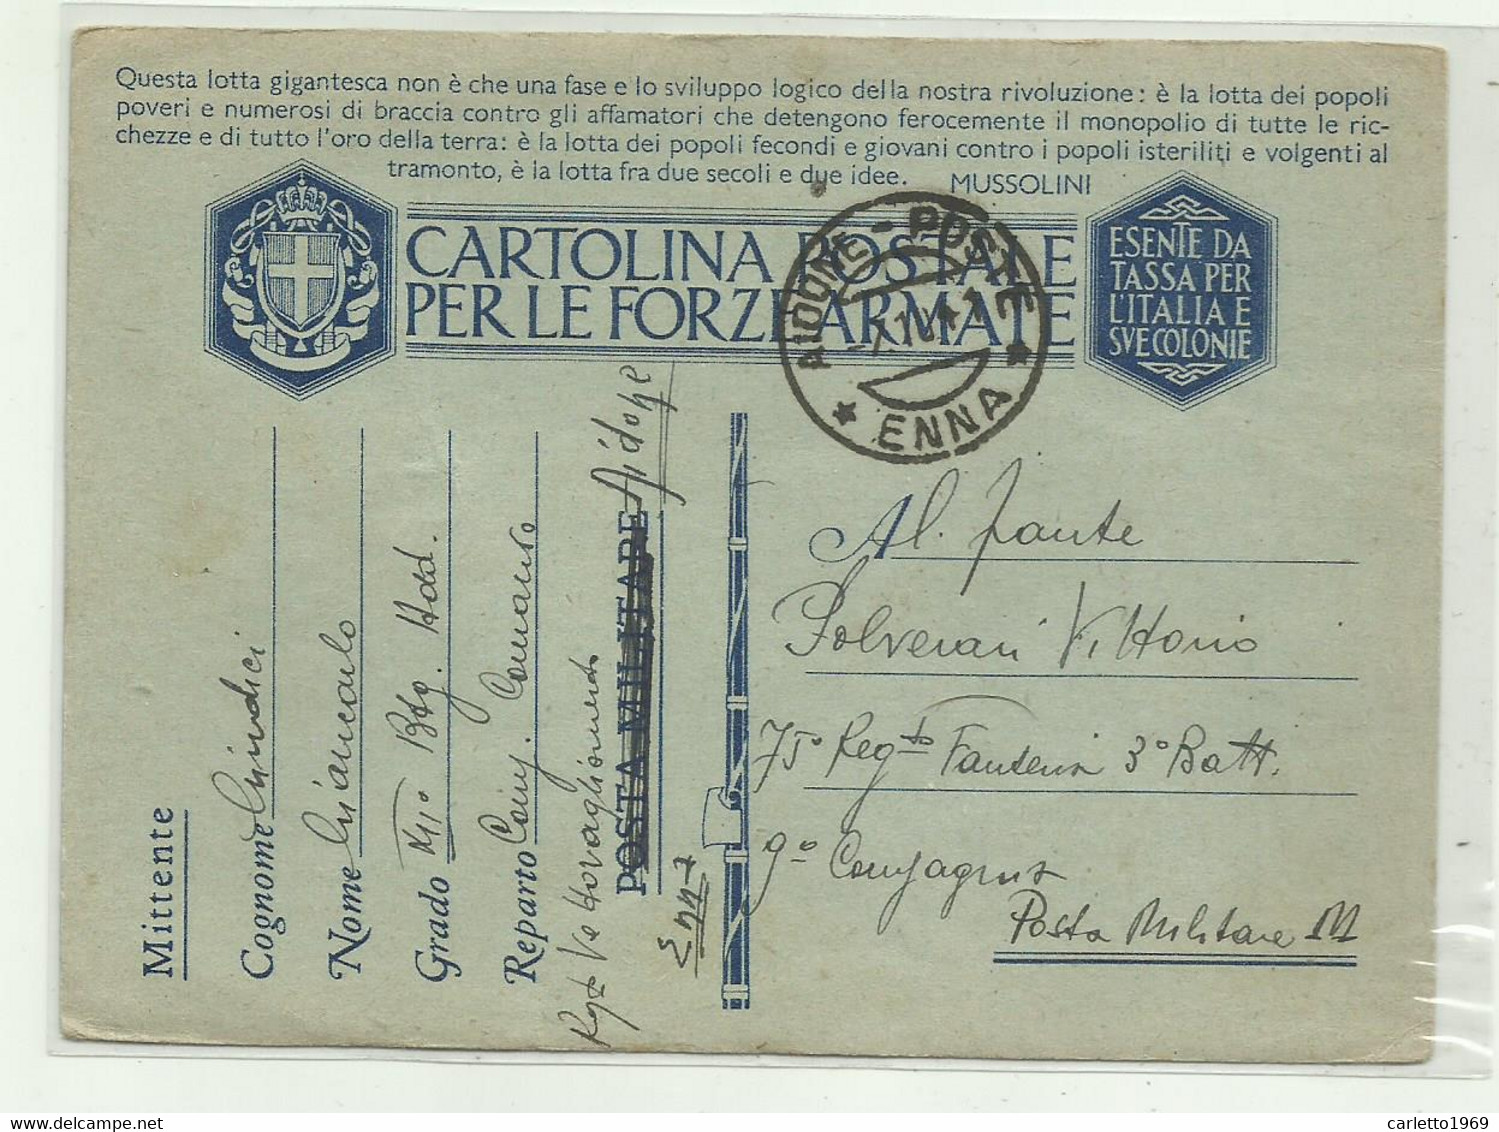 Questa lotta gigantesca non è che una fase e lo sviluppo logico della nostra rivoluzione: è la lotta dei popoli
poveri e numerosi di braccia contro gli affamatori che detengono ferocemente il monopolio di tutte le ric-
chezze e di tutto l'oro della terra: è la lotta dei popoli fecondi e giovani contro i popoli isteriliti e volgenti al
tramonto, è la lotta fra due secoli e due idee. MUSSOLINI
CARTOLINA POSTALE
PER LE FORZE ARMATE
ESENTE DA
TASSA PER
L'ITALIA E
SVE COLONIE
AIDONE - POSTE
ENNA
Mittente
Cognome
Nome Giancarlo
Grado Btg.
Reparto Comp. Comando
POSTA MILITARE Aidone
Enna
Al fante
Polverari Vittorio
75° Regto Fanteria 3° Batt.
9° Compagnia
Posta Militare
carletto1969